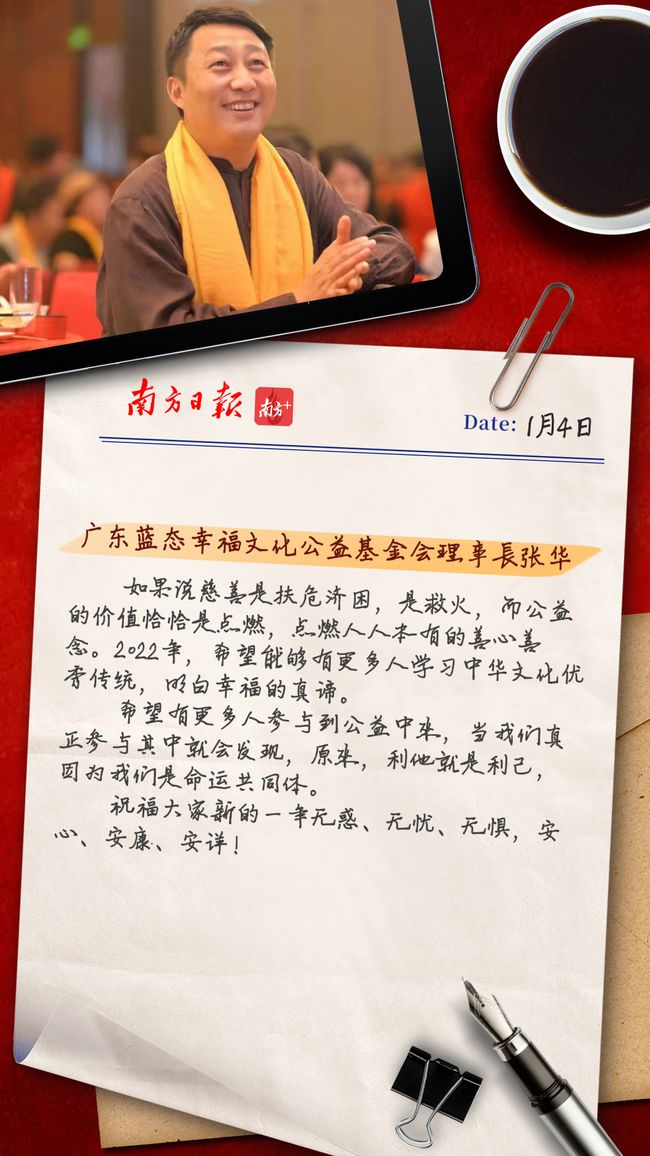 南方日报 南方+
Date: 1月4日
广东蓝态幸福文化公益基金会理事長张华
如果说慈善是扶危济困，是救火，而公益
的价值恰恰是点燃，点燃人人本有的善心善
念。2022年，希望能够有更多人学习中华文化优
秀传统，明白幸福的真谛。
希望有更多人参与到公益中来，当我们真
正参与其中就会发现，原来，利他就是利己，
因为我们是命运共同体。
祝福大家新的一年无惑、无忧、无惧，安
心、安康、安详！